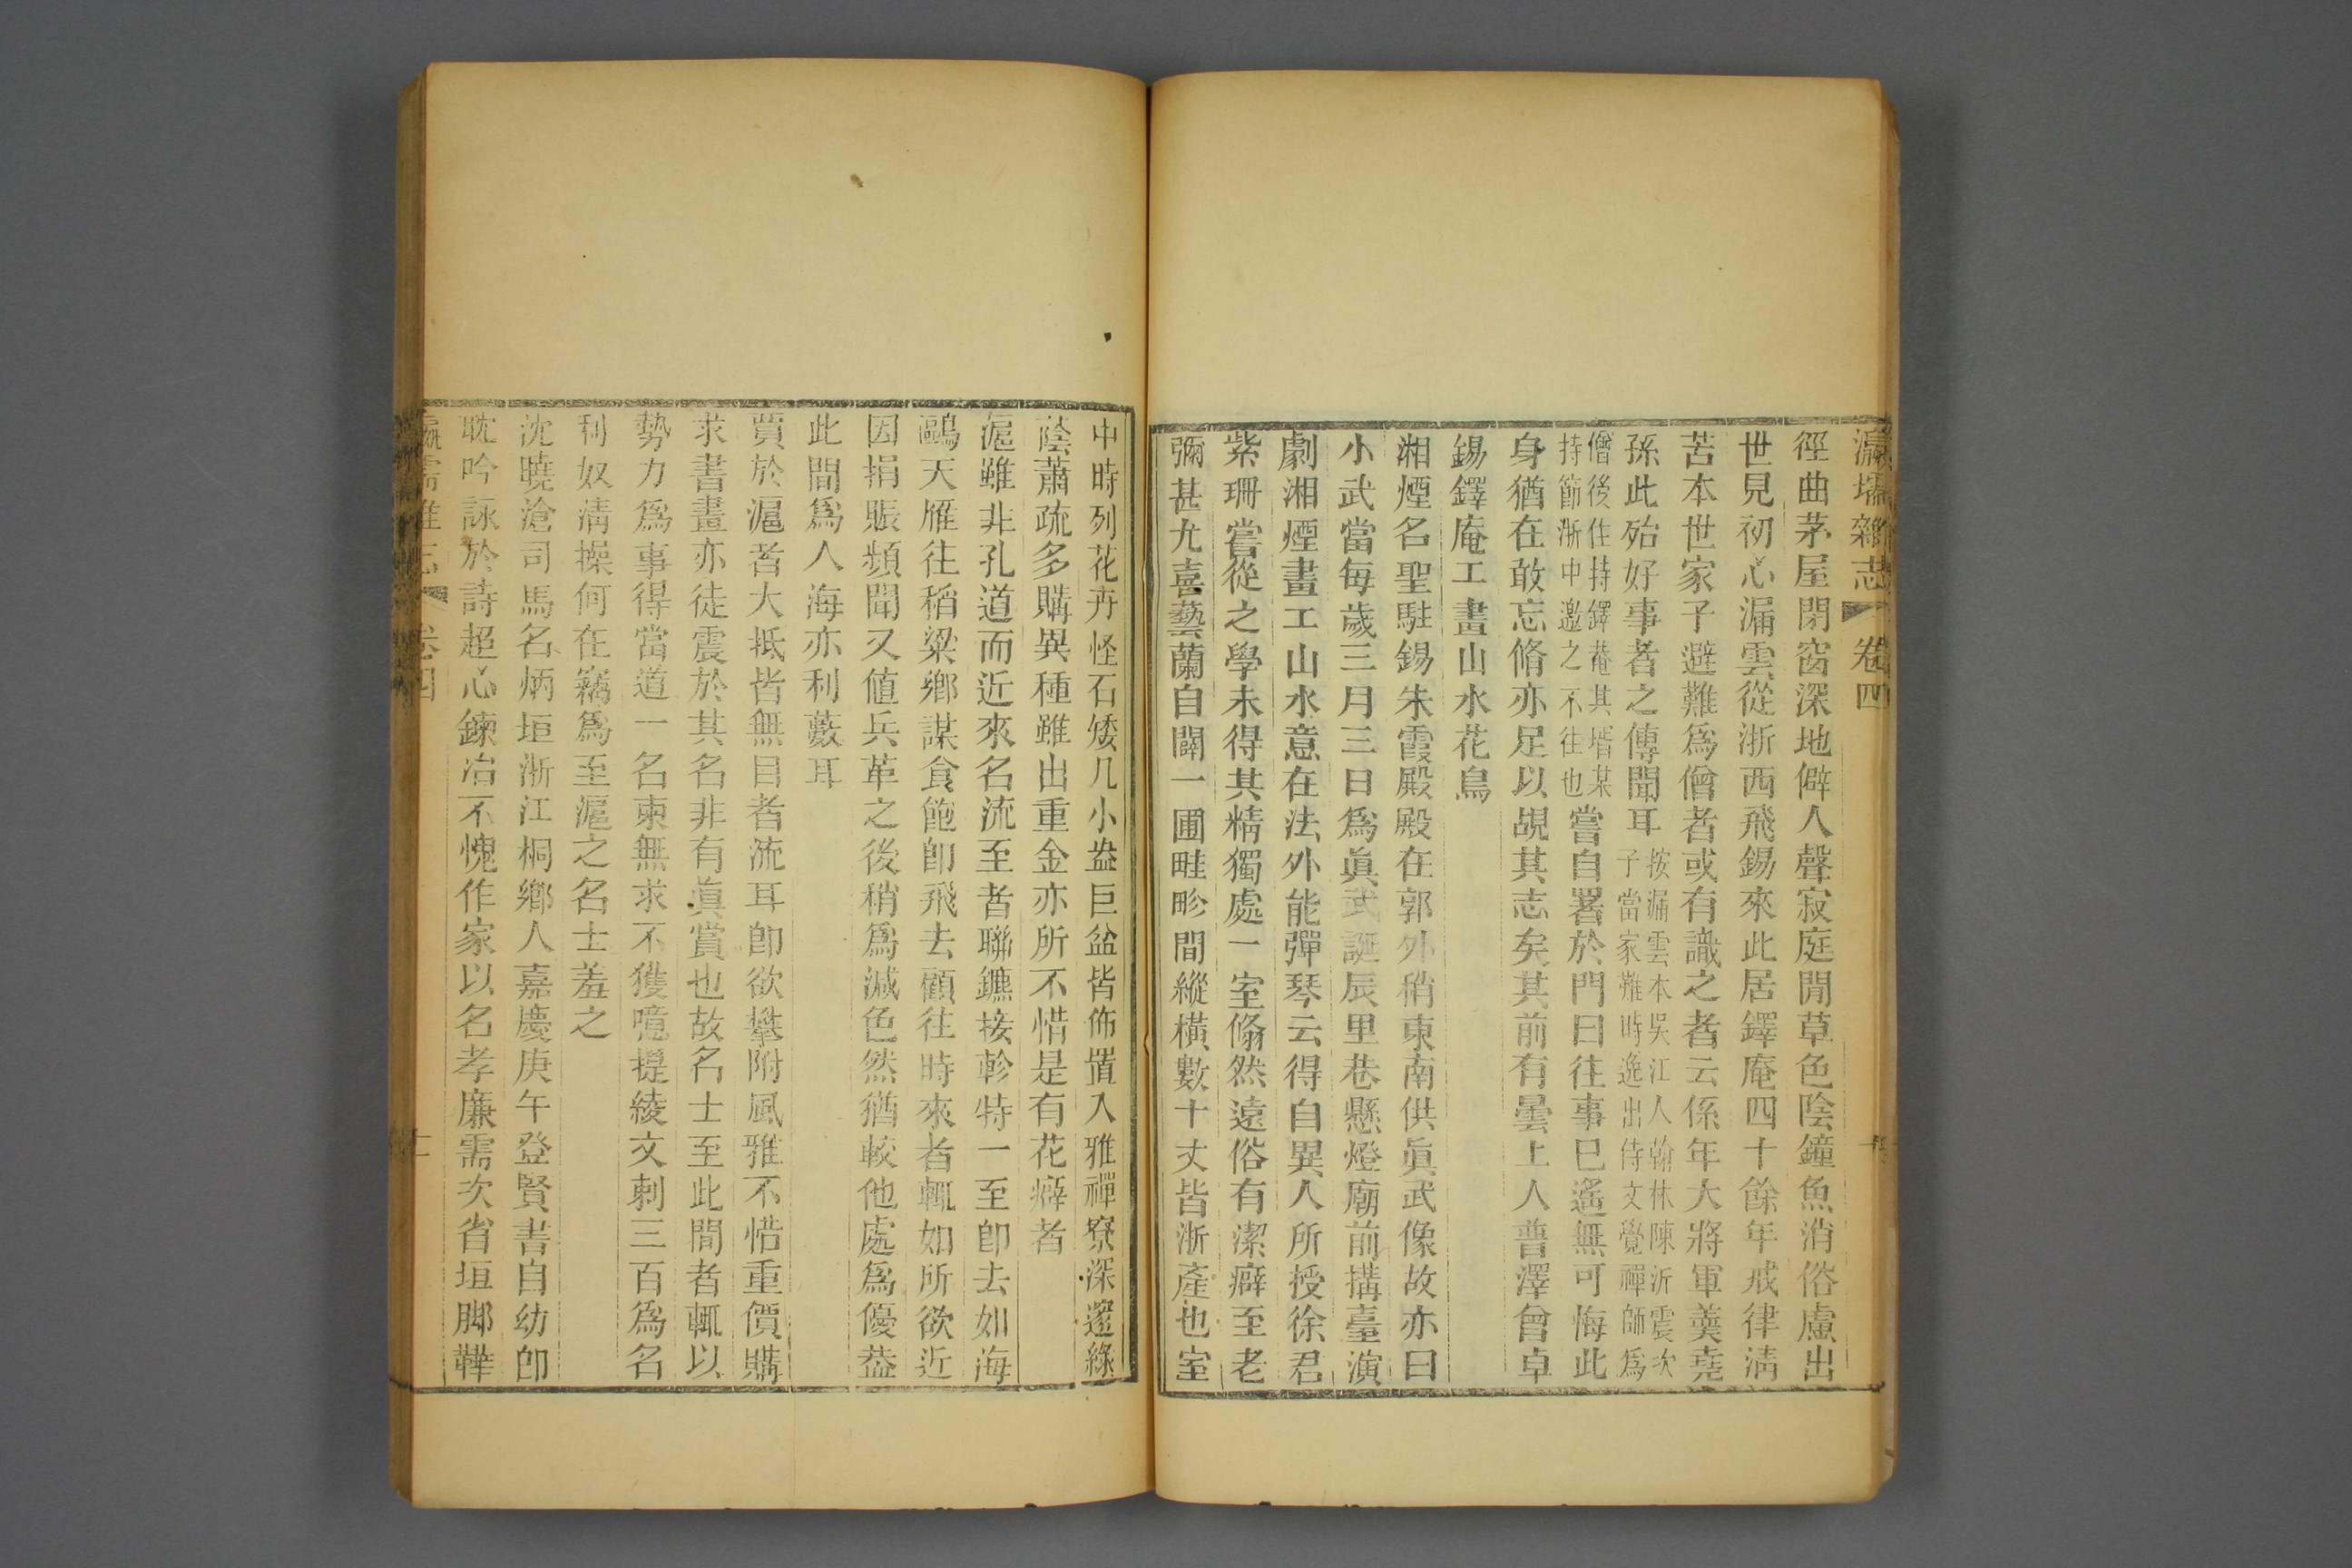 瀛壖雜志 卷四
徑曲茅屋閉窗深地僻人聲寂庭閒草色陰鐘魚消俗慮出
世見初心漏雲從浙西飛錫來此居鐸庵四十餘年戒律淸
苦本世家子避難爲僧者或有識之者云係年大將軍羹堯
孫此殆好事者之傳聞耳
按漏雲本吳江人翰林陳沂震次
子當家難時逸出侍文覺禪師爲
僧後住持鐸菴其壻某
持節浙中邀之不往也
嘗自署於門曰往事巳遙無可悔此
身猶在敢忘脩亦足以覘其志矣其前有曇上人普澤曾卓
錫鐸庵工畫山水花鳥
湘煙名聖駐錫朱霞殿殿在郭外稍東南供眞武像故亦曰
小武當每歲三月三日爲眞武誕辰里巷懸燈廟前搆臺演
劇湘煙畫工山水意在法外能彈琴云得自異人所授徐君
紫珊嘗從之學未得其精獨處一室翛然遠俗有潔癖至老
彌甚尤喜藝蘭自闢一圃畦畛間縱橫數十丈皆浙產也室
中時列花卉怪石矮几小盎巨盆皆佈置入雅禪寮深邃綠
蔭蕭疏多購異種雖出重金亦所不惜是有花癖者
滬雖非孔道而近來名流至者聯鑣接軫特一至卽去如海
鷗天雁往稻粱鄕謀食飽卽飛去顧往時來者輒如所欲近
因捐賑頻聞又值兵革之後稍爲減色然猶較他處爲優葢
此間爲人海亦利藪耳
賈於滬者大抵皆無目者流耳卽欲攀附風雅不惜重價購
求書畫亦徒震於其名非有眞賞也故名士至此間者輒以
勢力爲事得當道一名柬無求不獲噫提綾文刺三百爲名
利奴淸操何在竊爲至滬之名士羞之
沈曉滄司馬名炳垣浙江桐鄕人嘉慶庚午登賢書自幼卽
耽吟詠於詩超心鍊冶不愧作家以名孝廉需次省垣腳鞾
卷四